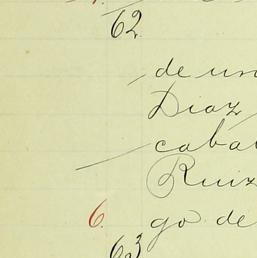 62
de un
Diaz
caba
Ruiz
6. go de
63